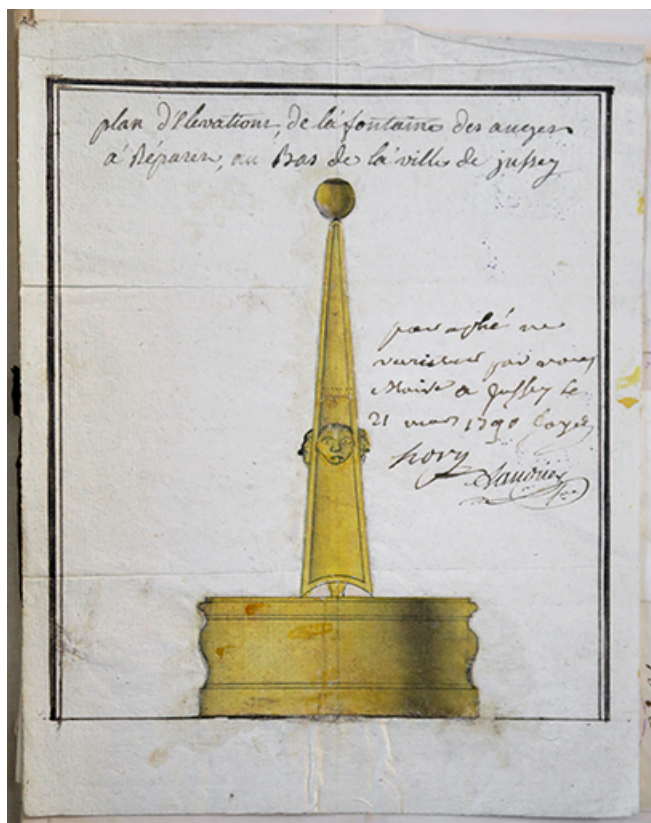 plan d'Elevations, de la fontaine des auges
à Réparer, au Bas de la ville de jussey
paraphé ne
varietur par nous
Maire a Jussey le
21 mars 1790